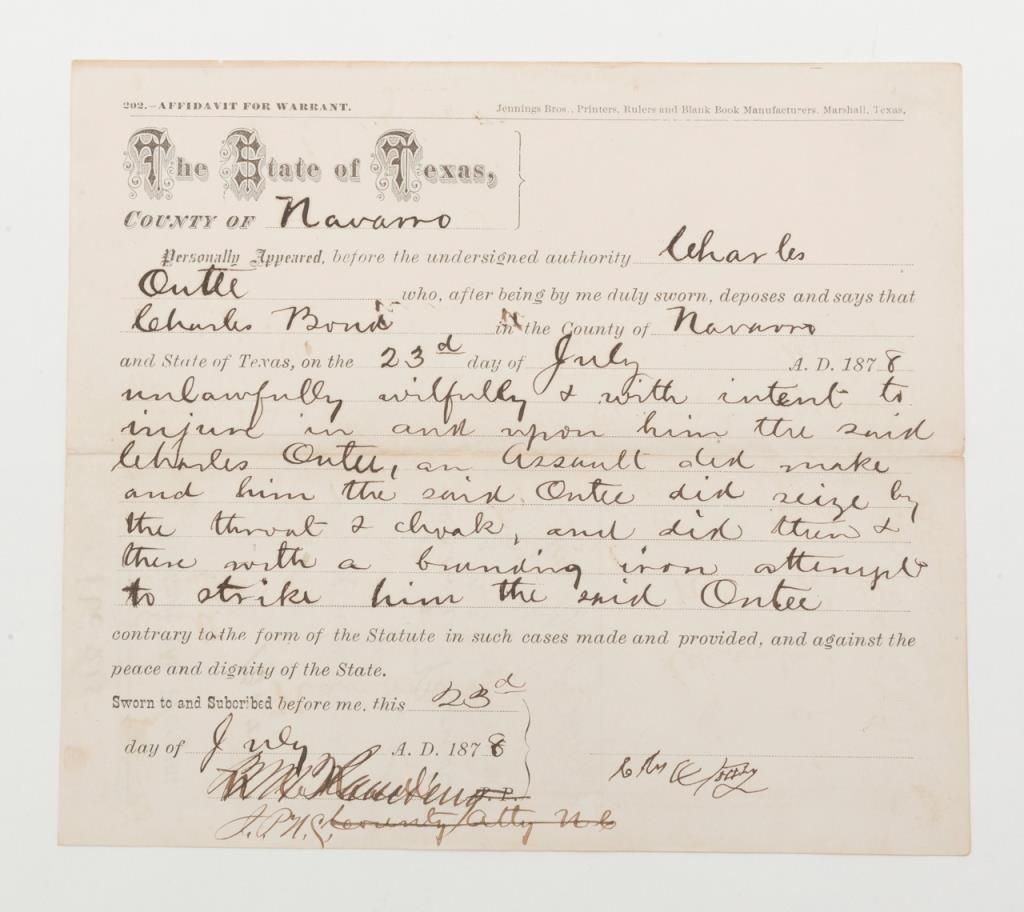 202.—AFFIDAVIT FOR WARRANT.
Jennings Bros., Printers, Rulers and Blank Book Manufacturers, Marshall, Texas,
The State of Texas,
COUNTY OF Navarro
Personally Appeared, before the undersigned authority Charles
Ontee who, after being by me duly sworn, deposes and says that
Charles Bond in the County of Navarro
and State of Texas, on the 23d day of July A. D. 1878
unlawfully wilfully & with intent to
injure in and upon him the said
Charles Ontee, an Assault did make
and him the said Ontee did seize by
the throat & choak, and did then &
there with a branding iron attempt
to strike him the said Ontee
contrary to the form of the Statute in such cases made and provided, and against the
peace and dignity of the State.
Sworn to and Subcribed before me, this 23d
day of July A. D. 1878
J.P.N.C. County Atty N C